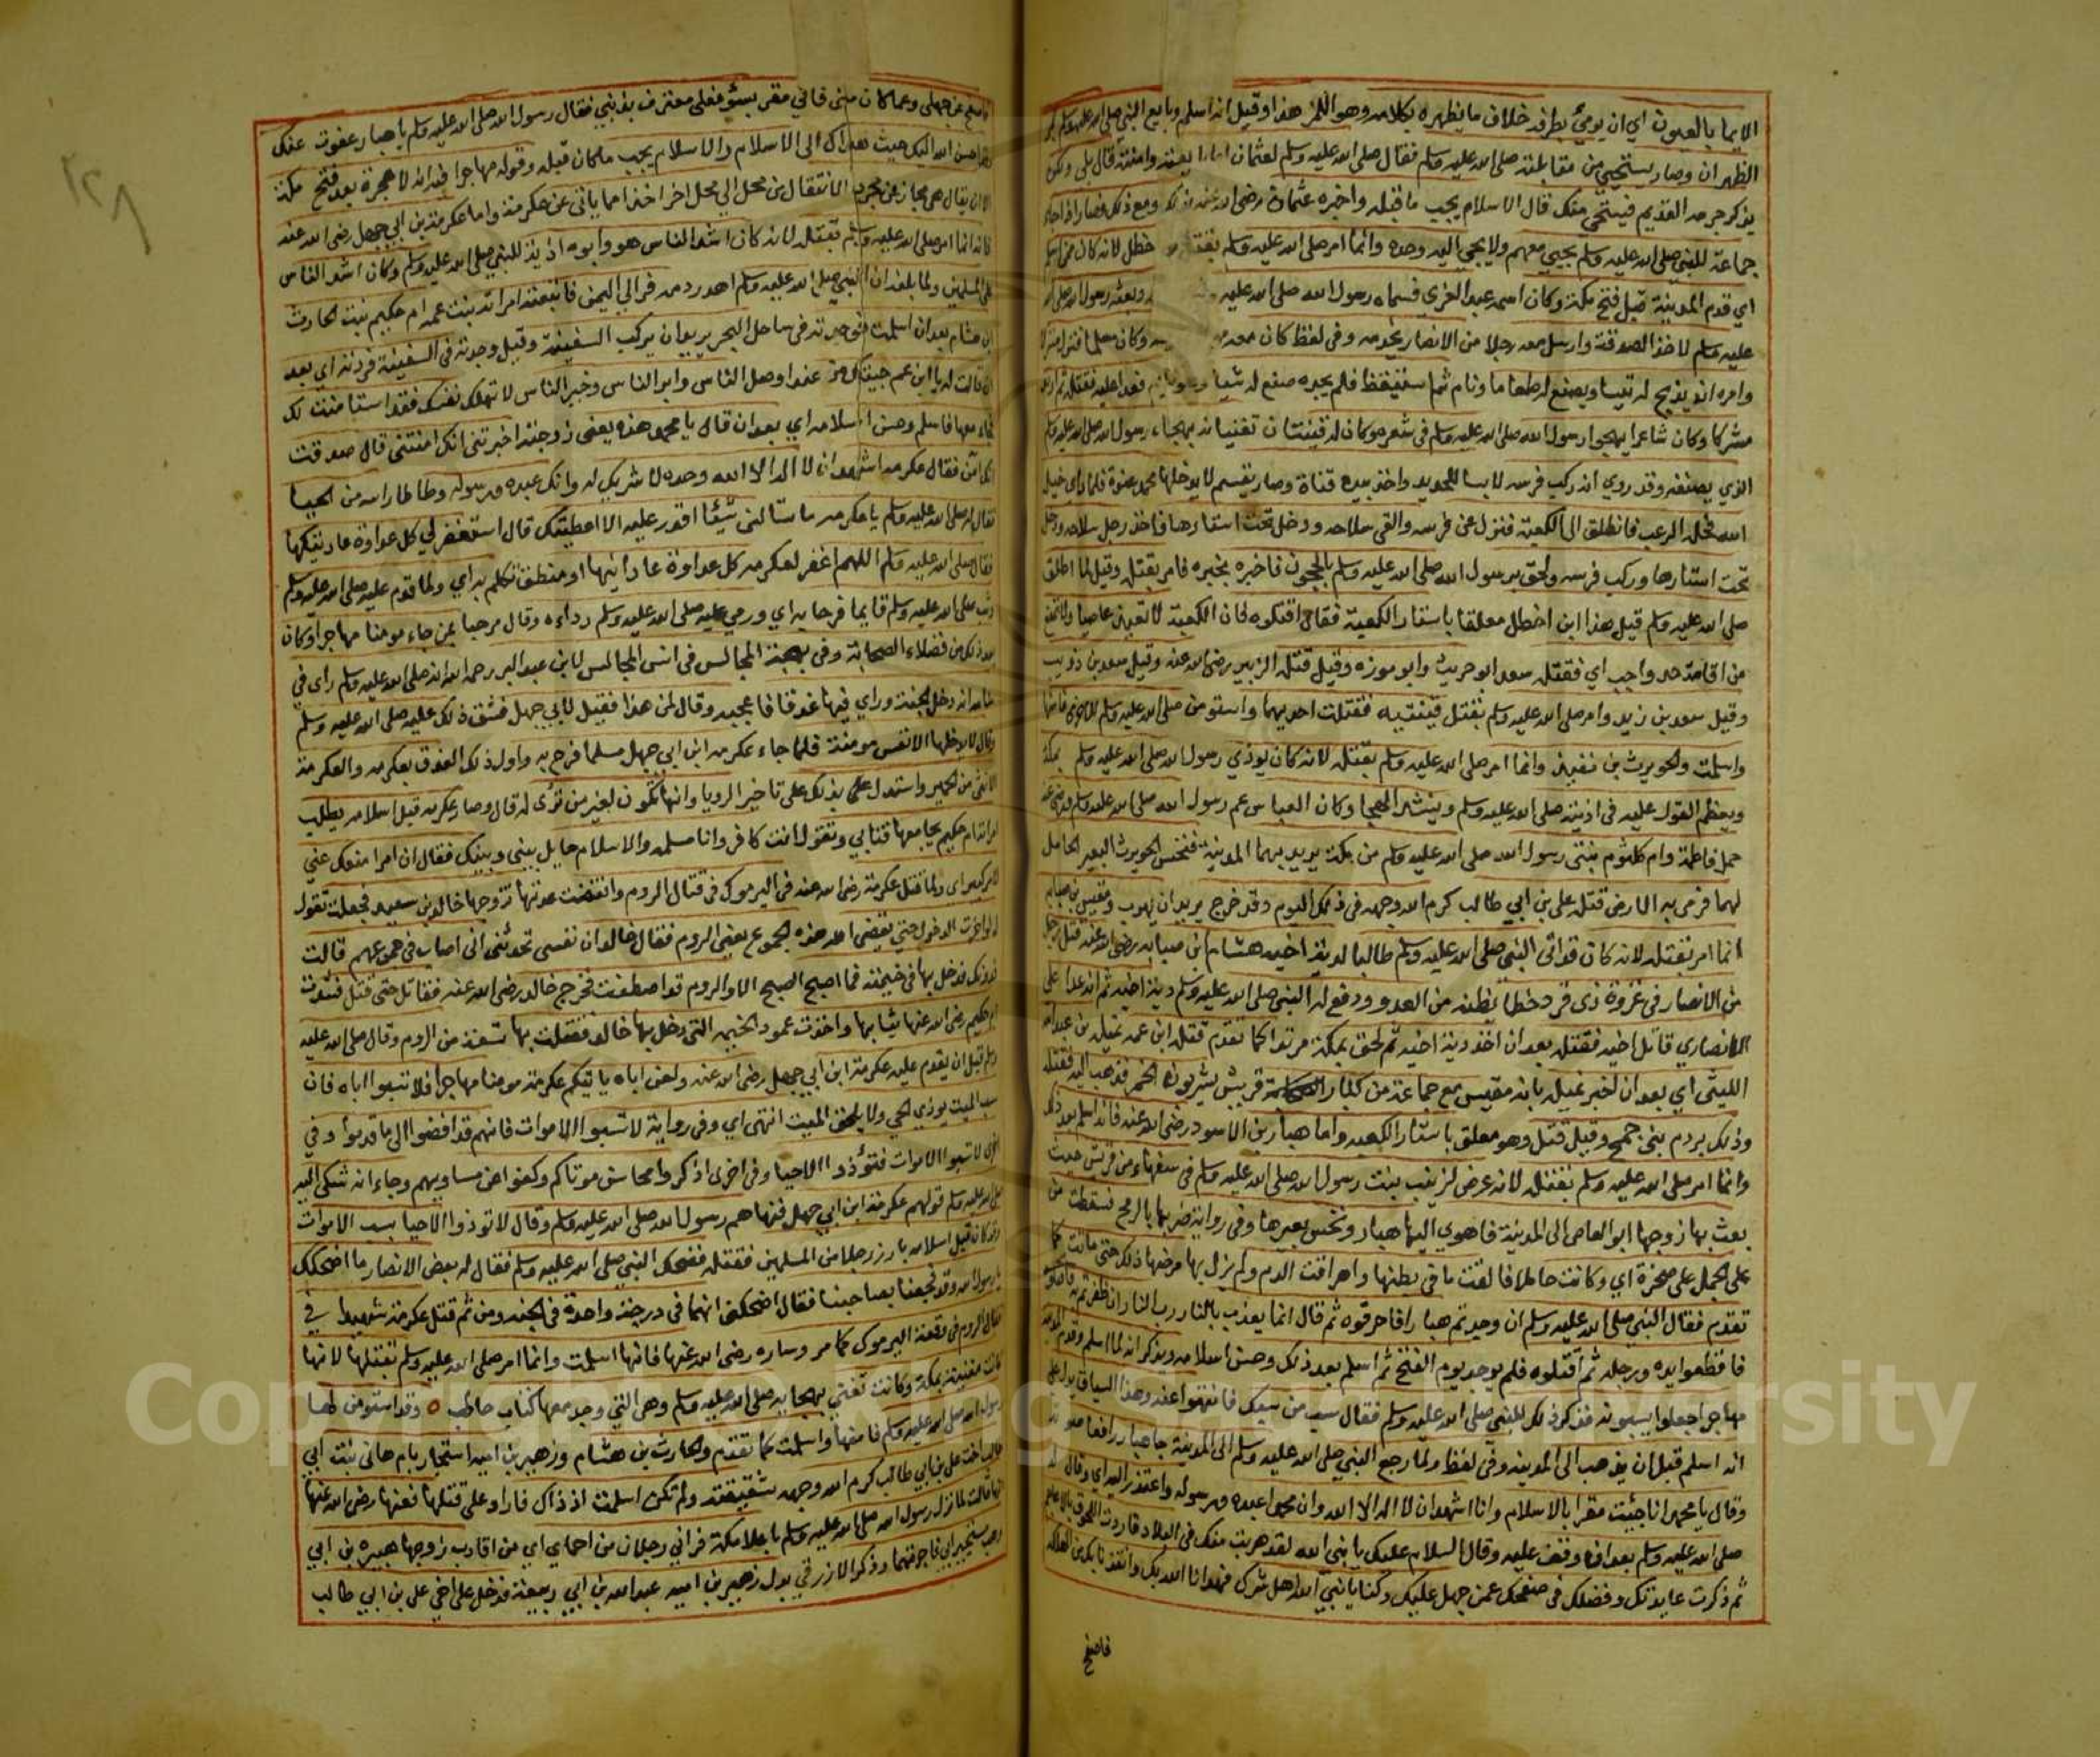 الايما بالعيون اي ان يومئ بطرفه خلاف ما يظهره بكلامه وهو اللمز هذا وقيل انه اسلم وبايع النبي صلى الله عليه وسلم
الظهران وصار يستحيي من مقابلته صلى الله عليه وسلم فقال صلى الله عليه وسلم لعثمان اما بايعته وامنته قال بلى ولكن
يذكر جرمه القديم فيستحي منك قال الاسلام يجب ما قبله واخبره عثمان رضي الله عنه بذلك ومع ذلك فصار اذا جاء
جماعة للنبي صلى الله عليه وسلم يجيي معهم ولا يجي اليه وحده وانما امر صلى الله عليه وسلم بقتل خطل لانه كان ممن اسلم
اي قدم المدينة قبل فتح مكة وكان اسمه عبد العزى فسماه رسول الله صلى الله عليه وبعثه رسول الله صلى الله
عليه وسلم لاخذ الصدقة وارسل معه رجلا من الانصار يخدمه وفي لفظ كان معه وكان مسلما فنزل منزلا
وامره ان يذبح له تيسا ويصنع له طعاما ونام ثم استيقظ فلم يجده صنع له شيا فعدا عليه فقتله ثم ارتد
مشركا وكان شاعرا يهجو رسول الله صلى الله عليه وسلم في شعره وكان له قينتان تغنيانه بهجاء رسول الله صلى الله عليه وسلم
الذي يصنعه وقد روي انه ركب فرسه لابسا للحديد واخذ بيده قناة وصار يقسم لا يدخلها محمد عنوة فلما راى خيل
الله دخله الرعب فانطلق الى الكعبة فنزل عن فرسه والقى سلاحه ودخل تحت استارها فاخذ رجل سلاحه ودخل
تحت استارها وركب فرسه ولحق برسول الله صلى الله عليه وسلم بالحجون فاخبره بخبره فامر بقتله وقيل لما اطلق
صلى الله عليه وسلم قيل هذا ابن اخطل معلقا باستار الكعبة فقال اقتلوه فان الكعبة لا تعيذ عاصيا ولا تمنع
من اقامة حد واجب اي فقتله سعد ابو حريث وابو برزه وقيل قتله الزبير رضي الله عنه وقيل سعد بن ذويب
وقيل سعد بن زيد وامر صلى الله عليه وسلم بقتل قينتيه فقتلت احديهما واستومن صلى الله عليه وسلم للاخرى فامنها
واسلمت والحويرث بن نفيذ وانما امر صلى الله عليه وسلم بقتله لانه كان يوذي رسول الله صلى الله عليه وسلم بمكة
ويعظم القول عليه في اذيته صلى الله عليه وسلم وينشد الهجا وكان العباس عم رسول الله صلى الله عليه وسلم ورضي عنه
حمل فاطمة وام كلثوم بنتي رسول الله صلى الله عليه وسلم من مكة يريد بهما المدينة فنخس الحويرث البعير الحامل
لهما فرمى به الارض قتله علي بن ابي طالب كرم الله وجهه في ذلك اليوم وقد خرج يريد ان يهرب ومقيس بن صبابه
انما امر بقتله لانه كان قد اتى النبي صلى الله عليه وسلم طالبا لدية اخيه هشام ابن صبابه رضي الله عنه قتله رجل
من الانصار في غزوة ذي قرد خطأ يظنه من العدو ودفع له النبي صلى الله عليه وسلم دية اخيه ثم انه عدا على
الانصاري قاتل اخيه فقتله بعد ان اخذ دية اخيه ثم لحق بمكة مرتدا كما تقدم قتله ابن عمه نميله بن عبد الله
الليثي اي بعد ان اخبر نميله بانه مقيس مع جماعة من كبار قريش يشربون الخمر فذهب اليه فقتله
وذلك بردم بني جمح وقيل قتل وهو معلق باستار الكعبه واما هبار بن الاسود رضي الله عنه فانه اسلم بعد ذلك
وانما امر صلى الله عليه وسلم بقتله لانه عرض لزينب بنت رسول الله صلى الله عليه وسلم في سفهاء من قريش حيث
بعث بها زوجها ابو العاص الى المدينة فاهوى اليها هبار ونخس بعيرها وفي رواية ضربها بالرمح فسقطت من
على الجمل على صخرة اي وكانت حاملا فالقت ما في بطنها واهراقت الدم ولم يزل بها مرضها ذلك حتى ماتت كما
تقدم فقال النبي صلى الله عليه وسلم ان وجدتم هبارا فاحرقوه ثم قال انما يعذب بالنار رب النار ان ظفرتم به
فاقطعوا يده ورجله ثم اقتلوه فلم يوجد يوم الفتح ثم اسلم بعد ذلك وحسن اسلامه ويذكر انه لما اسلم وقدم المدينة
مهاجرا جعلوا يسبونه فذكر ذلك للنبي صلى الله عليه وسلم فقال سب من سبك فانتهوا عنه وهذا السياق يدل على
انه اسلم قبل ان يذهب الى المدينة وفي لفظ ولما رجع النبي صلى الله عليه وسلم الى المدينة جا هبار رافعا صوته
وقال يا محمد انا جئت مقرا بالاسلام وانا اشهد ان لا اله الا الله وان محمدا عبده ورسوله واعتذر اليه اي وقال له
صلى الله عليه وسلم بعد ان وقف عليه وقال السلام عليك يا نبي الله لقد هربت منك في البلاد فاردت اللحوق بالاعاجم
ثم ذكرت عايدتك وفضلك في صفحك عمن جهل عليك وكنا يا نبي الله اهل شرك فهدانا الله بك وانقذنا بك من الهلكه
فاصفح
فاصفح عن جهلي وعما كان مني فاني مقر بسؤ فعلي معترف بذنبي فقال رسول الله صلى الله عليه وسلم يا هبار عفوت عنك
وقد احسن الله اليك حيث هداك الى الاسلام والاسلام يجب ما كان قبله وقوله مهاجرا فيه انه لا هجرة بعد فتح مكة
الا ان يقال هي مجاز عن مجرد الانتقال من محل الى محل اخر اخذا مما ياتي عن عكرمة واما عكرمة بن ابي جهل رضي الله عنه
فانه انما امر صلى الله عليه وسلم بقتله لانه كان اشد الناس هو وابوه اذية للنبي صلى الله عليه وسلم وكان اشد الناس
على المسلمين ولما بلغه ان النبي صلى الله عليه وسلم اهدر دمه فر الى اليمن فاتبعته امراته بنت عمه ام حكيم بنت الحارث
ابن هشام بعد ان اسلمت فوجدته في ساحل البحر يريد ان يركب السفينة وقيل وجدته في السفينة فردته اي بعد
ان قالت له يا ابن عم جيتك من عند اوصل الناس وابر الناس وخير الناس لا تهلك نفسك فقد استامنت لك
فجاء معها فاسلم وحسن اسلامه اي بعد ان قال يا محمد هذه يعني زوجته اخبرتني انك امنتني قال صدقت
انك آمن فقال عكرمه اشهد ان لا اله الا الله وحده لا شريك له وانك عبده ورسوله وطاطا راسه من الحيا
فقال له صلى الله عليه وسلم يا عكرمه ما تسالني شيئا اقدر عليه الا اعطيتك قال استغفر لي كل عداوة عاديتكها
فقال صلى الله عليه وسلم اللهم اغفر لعكرمه كل عداوة عادانيها او منطق تكلم به اي ولما قدم عليه صلى الله عليه وسلم
وثب صلى الله عليه وسلم قايما فرحا به اي ورمي عليه صلى الله عليه وسلم رداءه وقال مرحبا بمن جاء مومنا مهاجرا وكان
بعد ذلك من فضلاء الصحابة وفي بهجة المجالس في انس المجالس لابن عبد البر رحمه الله انه صلى الله عليه وسلم راى في
منامه انه دخل الجنة وراي فيها عذقا فاعجبه وقال لمن هذا فقيل لابي جهل فشق ذلك عليه صلى الله عليه وسلم
وقال لا يدخلها الا نفس مومنة فلما جاء عكرمه ابن ابي جهل مسلما فرح به واول ذلك العذق بعكرمه والعكرمة
الانثى من الحمير واستدل بذلك على تاخير الرويا وانها تكون لغير من تُرى له قال وصار عكرمه قبل اسلامه يطلب
امراته ام حكيم يجامعها فتابي وتقول انت كافر وانا مسلمة والاسلام حايل بيني وبينك فقال ان امرا منعك عني
لامر كبير اي ولما قتل عكرمة رضي الله عنه في اليرموك في قتال الروم وانقضت عدتها تزوجها خالد بن سعيد فجعلت تقول
له لو اخرت الدخول حتى يفضي الله هذه الجموع يعني الروم فقال خالد ان نفسي تحدثني اني اصاب في جموعهم قالت
فدونك فدخل بها في خيمته فما اصبح الصبح الا والروم قد اصطفت فخرج خالد رضي الله عنه فقاتل حتى قتل فشدت
ام حكيم رضي الله عنها ثيابها واخذت عمود الخيمه التي دخل بها خالد فقتلت بها تسعة من الروم وقال صلى الله عليه
وسلم قبل ان يقدم عليه عكرمة ابن ابي جهل رضي الله عنه ولعن اباه ياتيكم عكرمة مومنا مهاجرا فلا تسبوا اباه فان
سب الميت يوذي الحي ولا يلحق الميت انتهى اي وفي رواية لا تسبوا الاموات فانهم قد افضوا الى ما قدموا وفي
اخرى لا تسبوا الاموات فتؤذوا الاحيا وفي اخرى اذكروا محاسن موتاكم وكفوا عن مساويهم وجاء انه شكى اليه
صلى الله عليه وسلم قولهم عكرمة ابن ابي جهل فنهاهم رسول الله صلى الله عليه وسلم وقال لا توذوا الاحيا بسب الاموات
وقد كان قبل اسلامه بارز رجلا من المسلمين فقتله فضحك النبي صلى الله عليه وسلم فقال له بعض الانصار ما اضحكك
يا رسول الله وقد فجعنا بصاحبنا فقال اضحكني انهما في درجة واحدة في الجنه ومن ثم قتل عكرمة شهيدا في
قتال الروم في وقعة اليرموك كما مر وساره رضي الله عنها فانها اسلمت وانما امر صلى الله عليه وسلم بقتلها لانها
كانت مغنية بمكة وكانت تغني بهجايه صلى الله عليه وسلم وهي التي وجد معها كتاب حاطب ٥ وقد استومن لها
رسول الله صلى الله عليه وسلم فامنها واسلمت كما تقدم والحارث بن هشام وزهير بن اميه استجارا بام هاني بنت ابي
طالب اخت علي بن ابي طالب كرم الله وجهه شقيقته ولم تكن اسلمت اذ ذاك فاراد علي قتلهما فعنها رضي الله عنها
انها قالت لما نزل رسول الله صلى الله عليه وسلم باعلا مكة فر الي رجلان من احماي اي من اقارب زوجها هبيره بن ابي
وهب مستجيرين بي فاجرتهما وذكر الازرقي بدل زهير بن اميه عبد الله بن ابي ربيعة فدخل علي اخي علي بن ابي طالب
١٢٨
Copyright © King Saud University